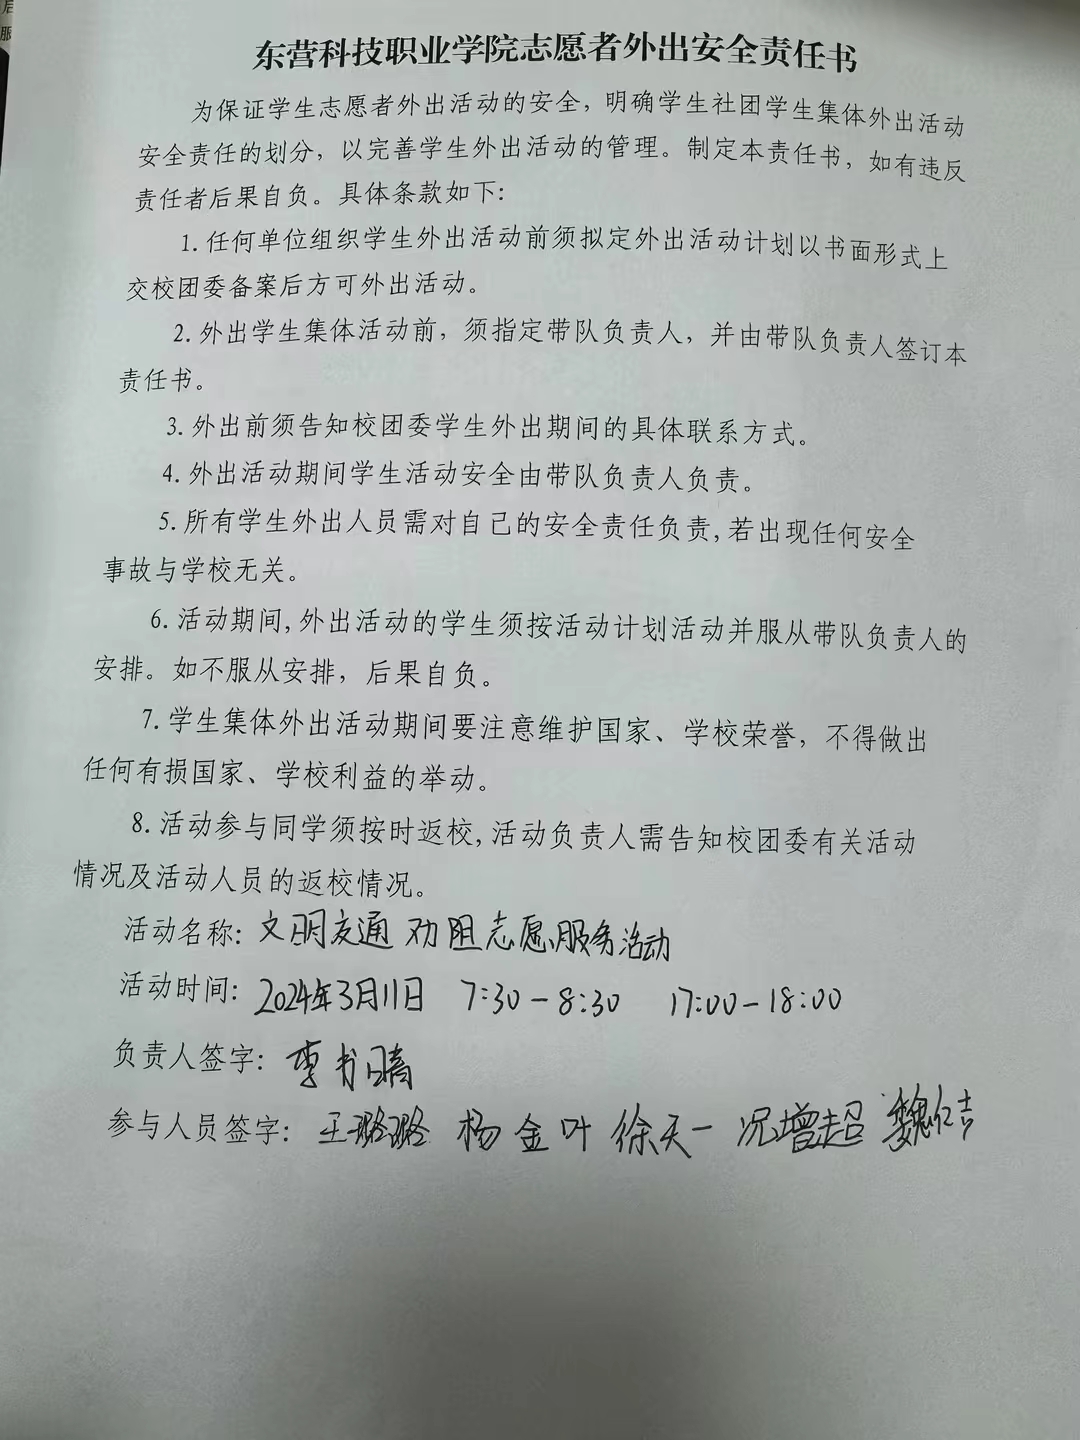 东营科技职业学院志愿者外出安全责任书
为保证学生志愿者外出活动的安全，明确学生社团学生集体外出活动
安全责任的划分，以完善学生外出活动的管理。制定本责任书，如有违反
责任者后果自负。具体条款如下：
1.任何单位组织学生外出活动前须拟定外出活动计划以书面形式上
交校团委备案后方可外出活动。
2.外出学生集体活动前，须指定带队负责人，并由带队负责人签订本
责任书。
3.外出前须告知校团委学生外出期间的具体联系方式。
4.外出活动期间学生活动安全由带队负责人负责。
5.所有学生外出人员需对自己的安全责任负责,若出现任何安全
事故与学校无关。
6.活动期间,外出活动的学生须按活动计划活动并服从带队负责人的
安排。如不服从安排，后果自负。
7.学生集体外出活动期间要注意维护国家、学校荣誉，不得做出
任何有损国家、学校利益的举动。
8.活动参与同学须按时返校,活动负责人需告知校团委有关活动
情况及活动人员的返校情况。
活动名称：文明交通劝阻志愿服务活动
活动时间：2024年3月11日 7:30-8:30 17:00-18:00
负责人签字：李书晴
参与人员签字：王璐璐 杨金叶 徐天一 况增超 魏仁吉
后
服